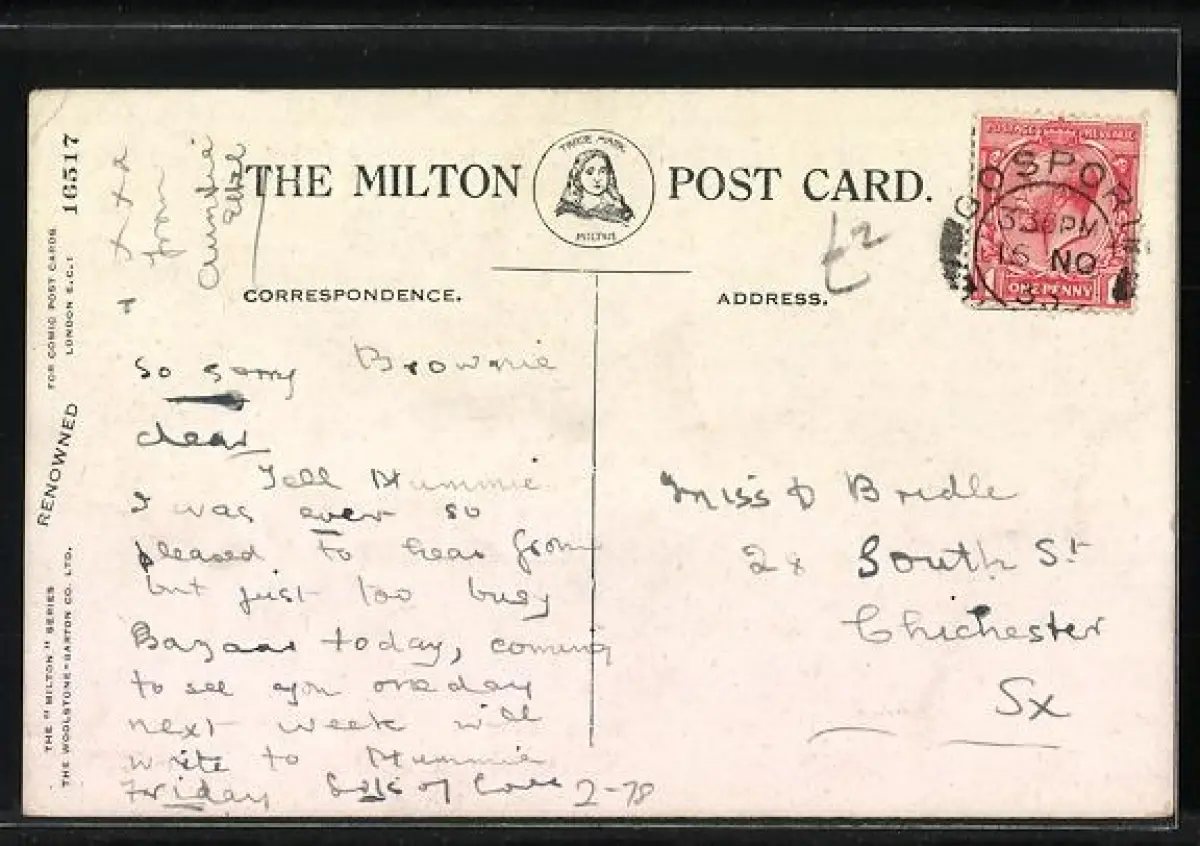 THE MILTON POST CARD.
TRADE MARK
MILTON
CORRESPONDENCE.
ADDRESS.
POSTAGE REVENUE
ONE PENNY
GOSPORT
3 30 PM
16 NO
33
£2
So sorry Brownie
dear
Tell Mummie
I was ever so
pleased to hear from
but just too busy
Bazaar today, coming
to see you one day
next week will
write to Mummie
Friday Lots of Love
2-78
xxx
from
Auntie
Ethel
Miss D Bridle
2 South St
Chichester
Sx
THE "MILTON" SERIES RENOWNED FOR COMIC POST CARDS.
THE WOOLSTONE-BARTON CO. LTD. LONDON E.C.1
16517